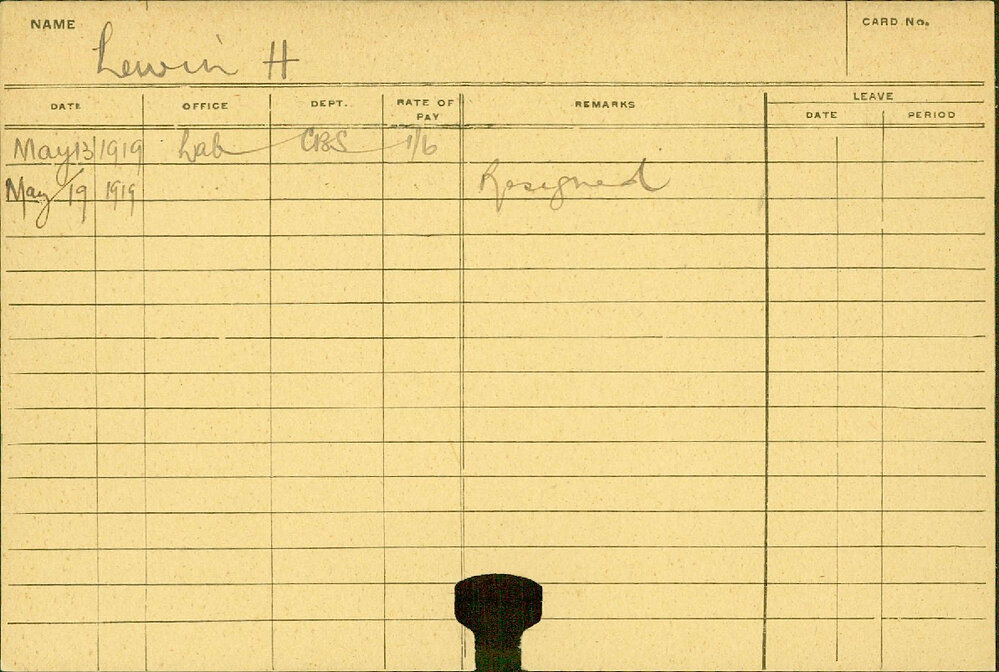 NAME Lewin H CARD No.
DATE OFFICE DEPT. RATE OF PAY REMARKS LEAVE
DATE PERIOD
May 13 1919 Lab CBS 1/6
May 19 1919 Resigned